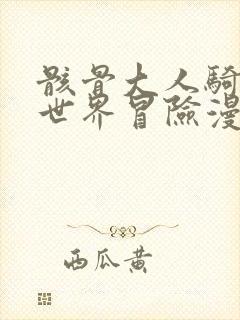 骸骨大人騎
世界冒險漫
西瓜黄